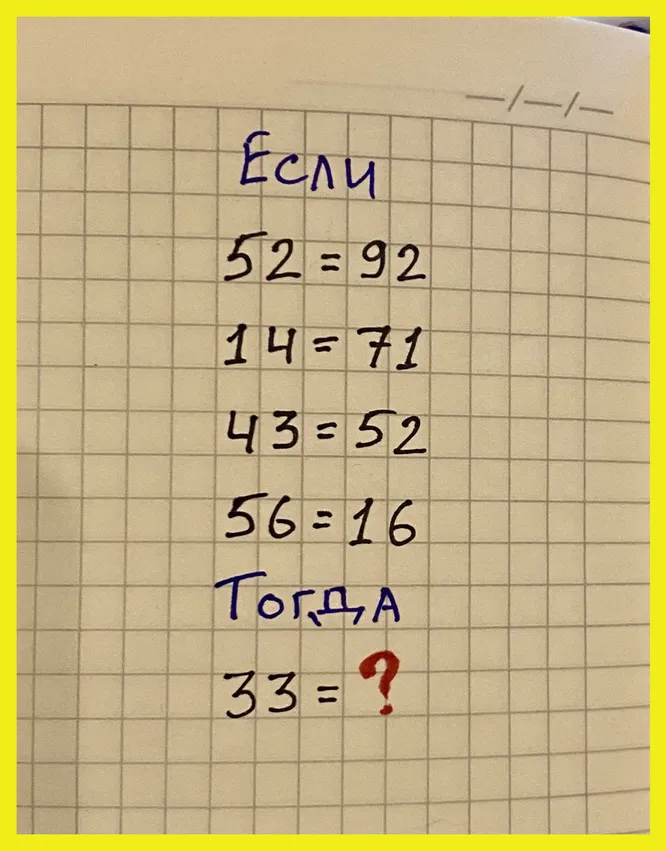 __/__/__
Если
52 = 92
14 = 71
43 = 52
56 = 16
Тогда
33 = ?